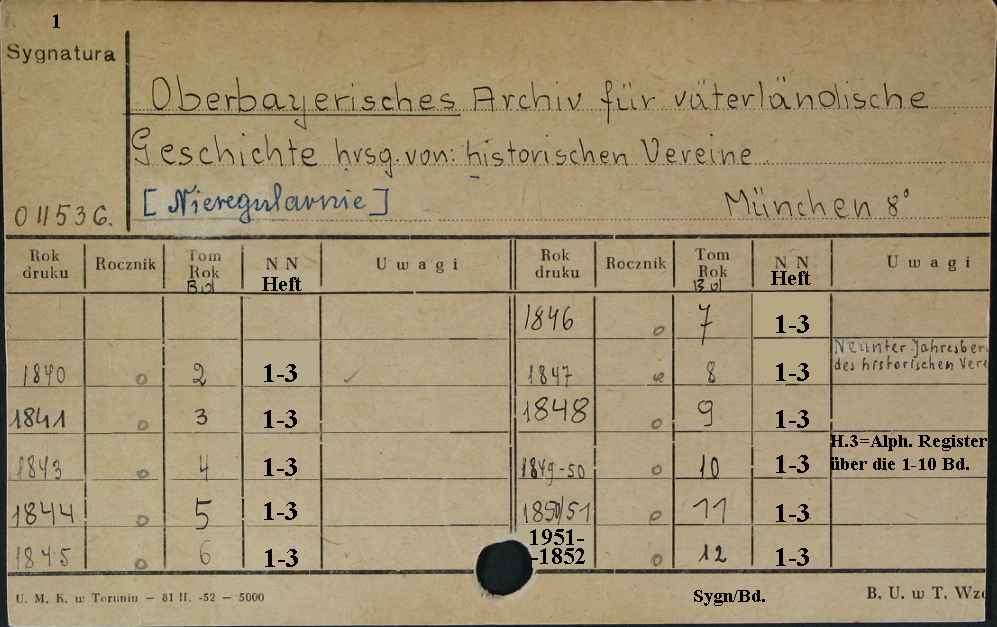 1
Sygnatura
Oberbayerisches Archiv für väterländische
Geschichte hrsg. von: historischen Vereine
[Nieregularnie] München 8°
011536.
Rok druku Rocznik Tom Rok Bd NN Heft Uwagi Rok druku Rocznik Tom Rok Bd NN Heft Uwagi
1846 o 7 1-3
1840 o 2 1-3 ✓ 1847 o 8 1-3 Neunter Jahresber
des historischen Vere
1841 o 3 1-3 1848 o 9 1-3
1843 o 4 1-3 1849-50 o 10 1-3 H.3=Alph. Register
über die 1-10 Bd.
1844 o 5 1-3 1850/51 o 11 1-3
1845 o 6 1-3 1951-
-1852 o 12 1-3
U. M. K. w Toruniu — 81 II. -52 — 5000 Sygn/Bd. B. U. w T. Wz